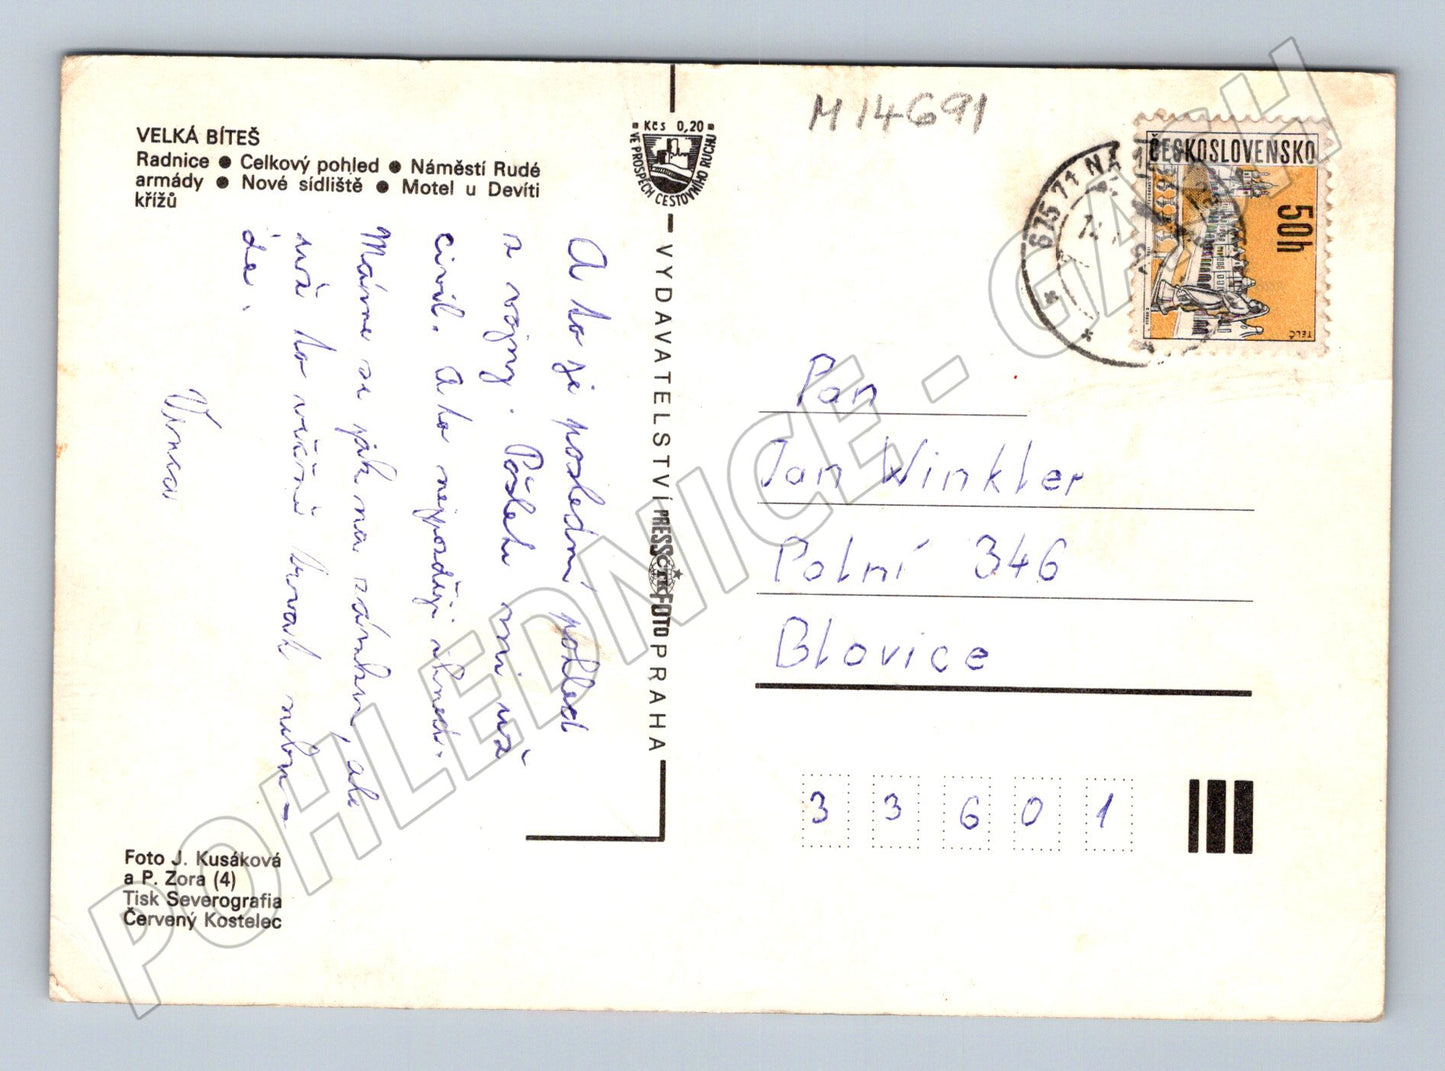 M 14691
VELKÁ BÍTEŠ
Radnice ● Celkový pohled ● Náměstí Rudé
armády ● Nové sídliště ● Motel u Devíti
křížů
A to je poslední pohled
z vojny. Pošleh mi už
civil. A to nejpozději ihned.
Máme se jak na zámku, ale
to věčně trvat nebu-
de.
Foto J. Kusáková
a P. Zora (4)
Tisk Severografia
Červený Kostelec
Kčs 0,20
VE PROSPĚCH CESTOVNÍHO RUCHU
VYDAVATELSTVÍ PRESSFOTO PRAHA
ČTK
ČESKOSLOVENSKO
50h
TELČ
675 71 NÁ
Pan
Jan Winkler
Polní 346
Blovice
33601
POHLEDNICE - GACH